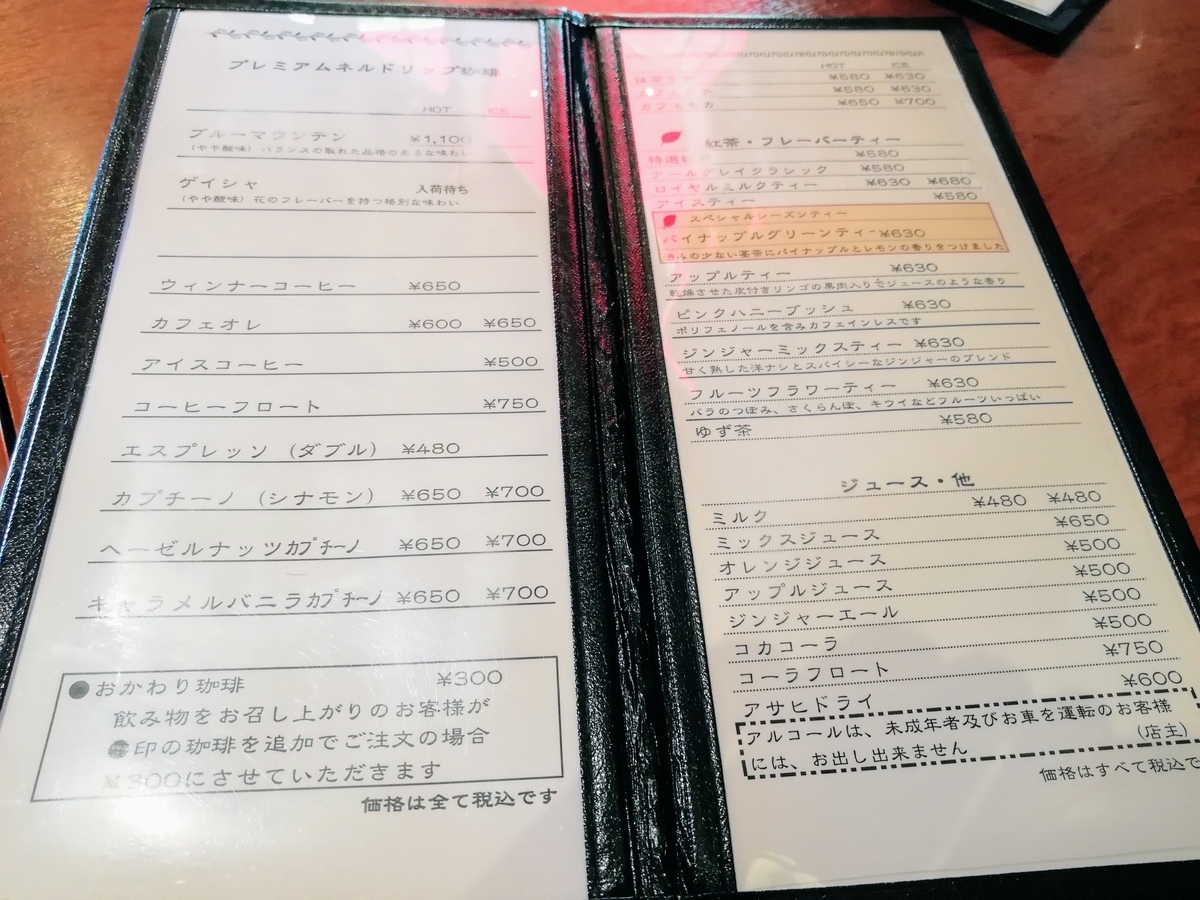 プレミアムネルドリップ珈琲
HOT ICE
ブルーマウンテン ¥1,100
(やや酸味) バランスの取れた品格のあるな味わい
ゲイシャ 入荷待ち
(やや酸味) 花のフレーバーを持つ格別な味わい
ウィンナーコーヒー ¥650
カフェオレ ¥600 ¥650
アイスコーヒー ¥500
コーヒーフロート ¥750
エスプレッソ (ダブル) ¥480
カプチーノ (シナモン) ¥650 ¥700
ヘーゼルナッツカプチーノ ¥650 ¥700
キャラメルバニラカプチーノ ¥650 ¥700
●おかわり珈琲 ¥300
飲み物をお召し上がりのお客様が
●印の珈琲を追加でご注文の場合
¥300にさせていただきます
価格は全て税込です
HOT ICE
¥580 ¥630
¥580 ¥630
カフェモカ ¥650 ¥700
紅茶・フレーバーティー
特選 ¥580
アールグレイクラシック ¥580
ロイヤルミルクティー ¥630 ¥680
アイスティー ¥580
スペシャルシーズンティー
パイナップルグリーンティー ¥630
渋みの少ない茎茶にパイナップルとレモンの香りをつけました
アップルティー ¥630
乾燥させた皮付きリンゴの果肉入りでジュースのような香り
ピンクハニーブッシュ ¥630
ポリフェノールを含みカフェインレスです
ジンジャーミックスティー ¥630
甘く熟した洋ナシとスパイシーなジンジャーのブレンド
フルーツフラワーティー ¥630
バラのつぼみ、さくらんぼ、キウイなどフルーツいっぱい
ゆず茶 ¥580
ジュース・他
ミルク ¥480 ¥480
ミックスジュース ¥650
オレンジジュース ¥500
アップルジュース ¥500
ジンジャーエール ¥500
コカコーラ ¥500
コーラフロート ¥750
アサヒドライ ¥600
アルコールは、未成年者及びお車を運転のお客様
には、お出し出来ません (店主)
価格はすべて税込で